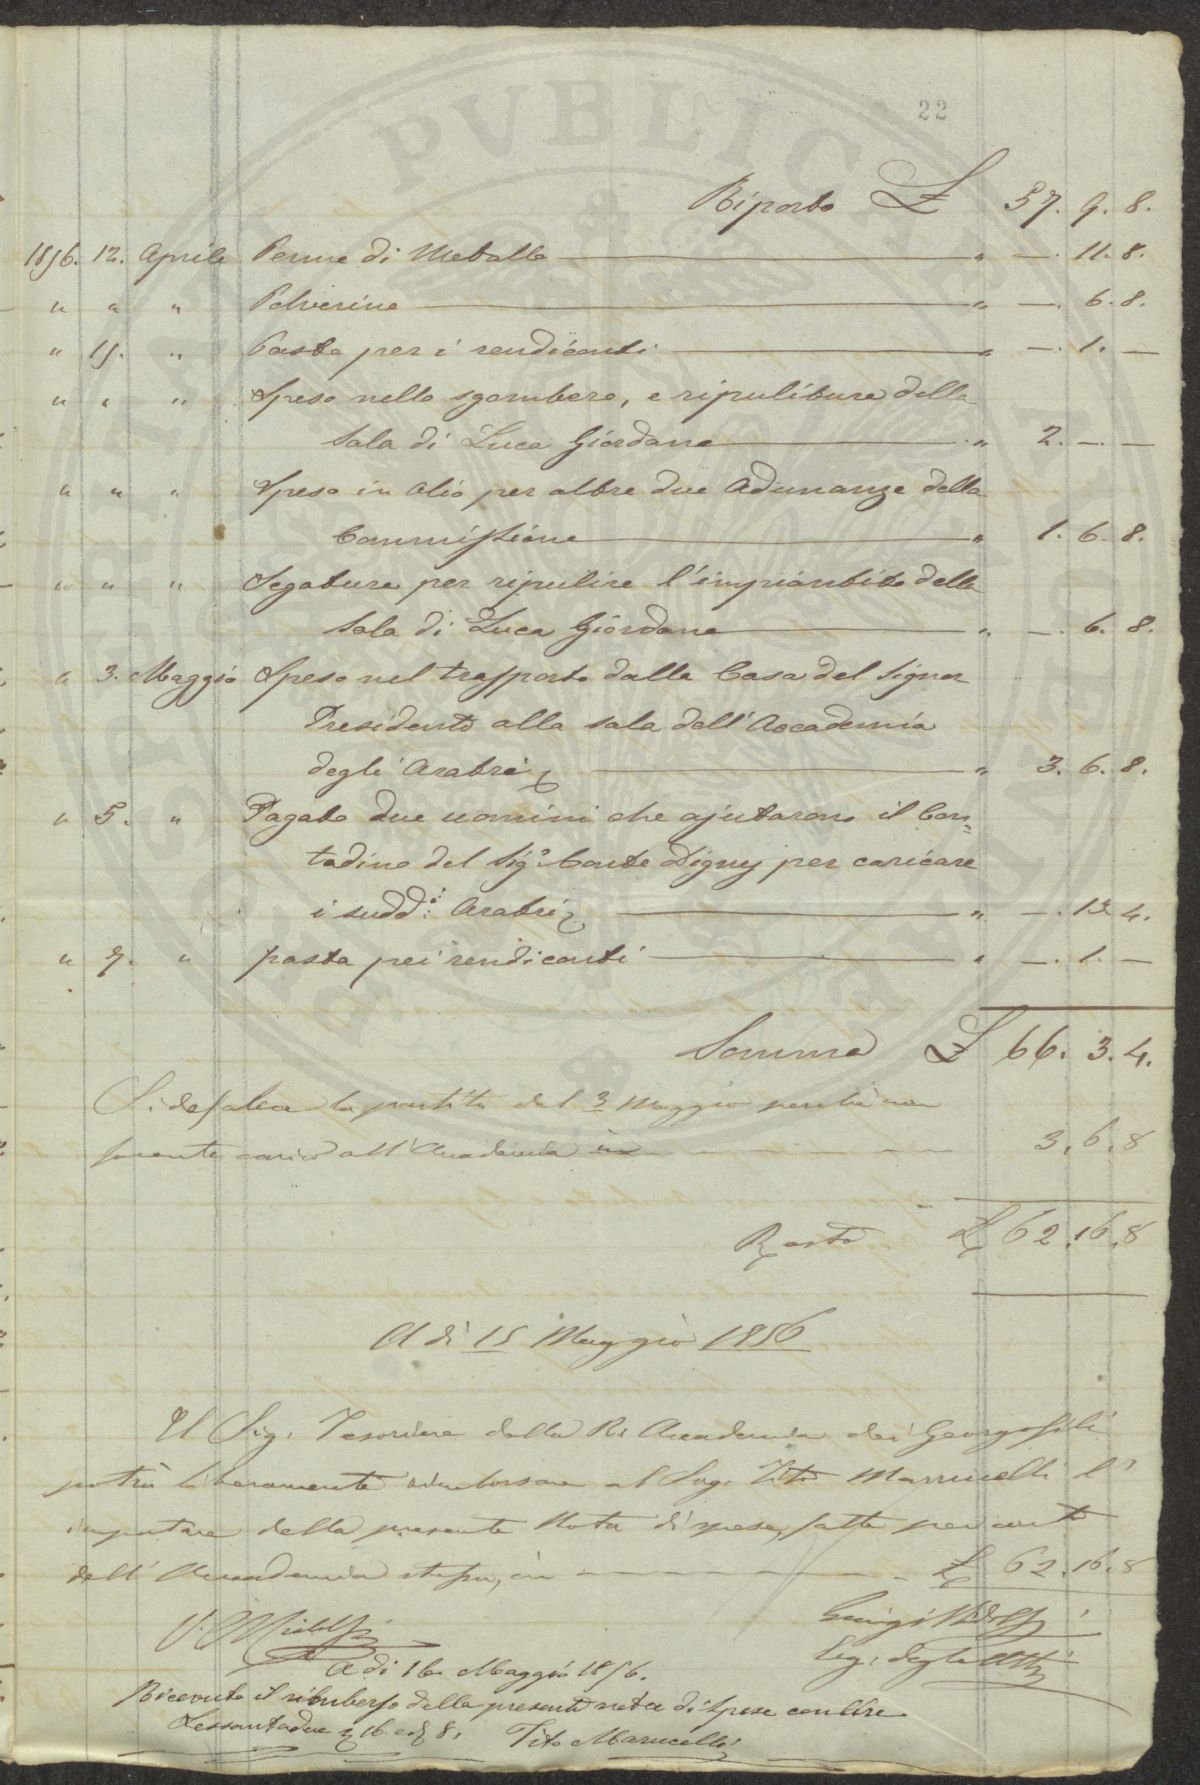 22
Riporto £ 57. 9. 8.
1856. 12. Aprile Penne di Metallo " —. 11. 8.
" " " Polverino " —. 6. 8.
" 15. " Pasta per i rendiconti " —. 1. —
" " " Spese nello sgombero, e ripulitura della
Sala di Luca Giordano " 2. —. —
" " " Spese in olio per altre due Adunanze della
Commissione " 1. 6. 8.
" " " Segatura per ripulire l'impiantito della
Sala di Luca Giordano " —. 6. 8.
" 3. Maggio Spese nel trasporto dalla Casa del Signor
Presidente alla sala dell'Accademia
degli Aratri " 3. 6. 8.
" 5. " Pagato due uomini che ajutarono il Con=
tadino del Sig.r Conte Digny per caricare
i sudd.i Aratri " —. 13. 4.
" 7. " pasta pei rendiconti " —. 1. —
Somma £ 66. 3. 4.
Si defalca la partita del 3 Maggio perchè non
facente carico all'Accademia in 3. 6. 8
Resta £ 62. 16. 8
A dì 15 Maggio 1856
Il Sig. Tesoriere della R. Accademia dei Georgofili
potrà liberamente rimborsare al Sig. Tito Marrucelli l'
importare della presente Nota di spese, fatte per conto
dell'Accademia stessa, in £ 62. 16. 8
V. Ridolfi
Luigi Ridolfi
Seg. degli Atti
A di 16. Maggio 1856.
Ricevuto il rimborso della presente nota di Spese con Lire
Sessantadue 16. e 8. Tito Marucelli